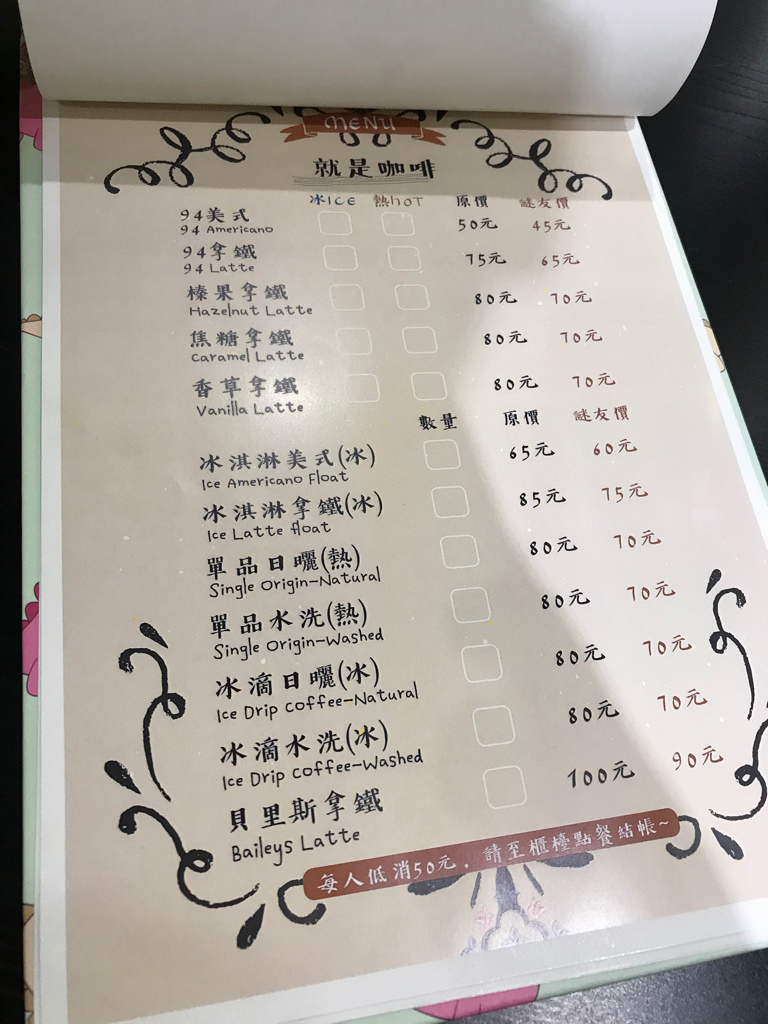 MENU
就是咖啡
冰ICE 熱hOT 原價 謎友價
94美式 50元 45元
94 Americano
94拿鐵 75元 65元
94 Latte
榛果拿鐵 80元 70元
Hazelnut Latte
焦糖拿鐵 80元 70元
Caramel Latte
香草拿鐵 80元 70元
Vanilla Latte
數量 原價 謎友價
冰淇淋美式(冰) 65元 60元
Ice Americano Float
冰淇淋拿鐵(冰) 85元 75元
Ice Latte float
單品日曬(熱) 80元 70元
Single Origin-Natural
單品水洗(熱) 80元 70元
Single Origin-Washed
冰滴日曬(冰) 80元 70元
Ice Drip Coffee-Natural
冰滴水洗(冰) 80元 70元
Ice Drip Coffee-Washed
貝里斯拿鐵 100元 90元
Baileys Latte
每人低消50元．請至櫃檯點餐結帳~